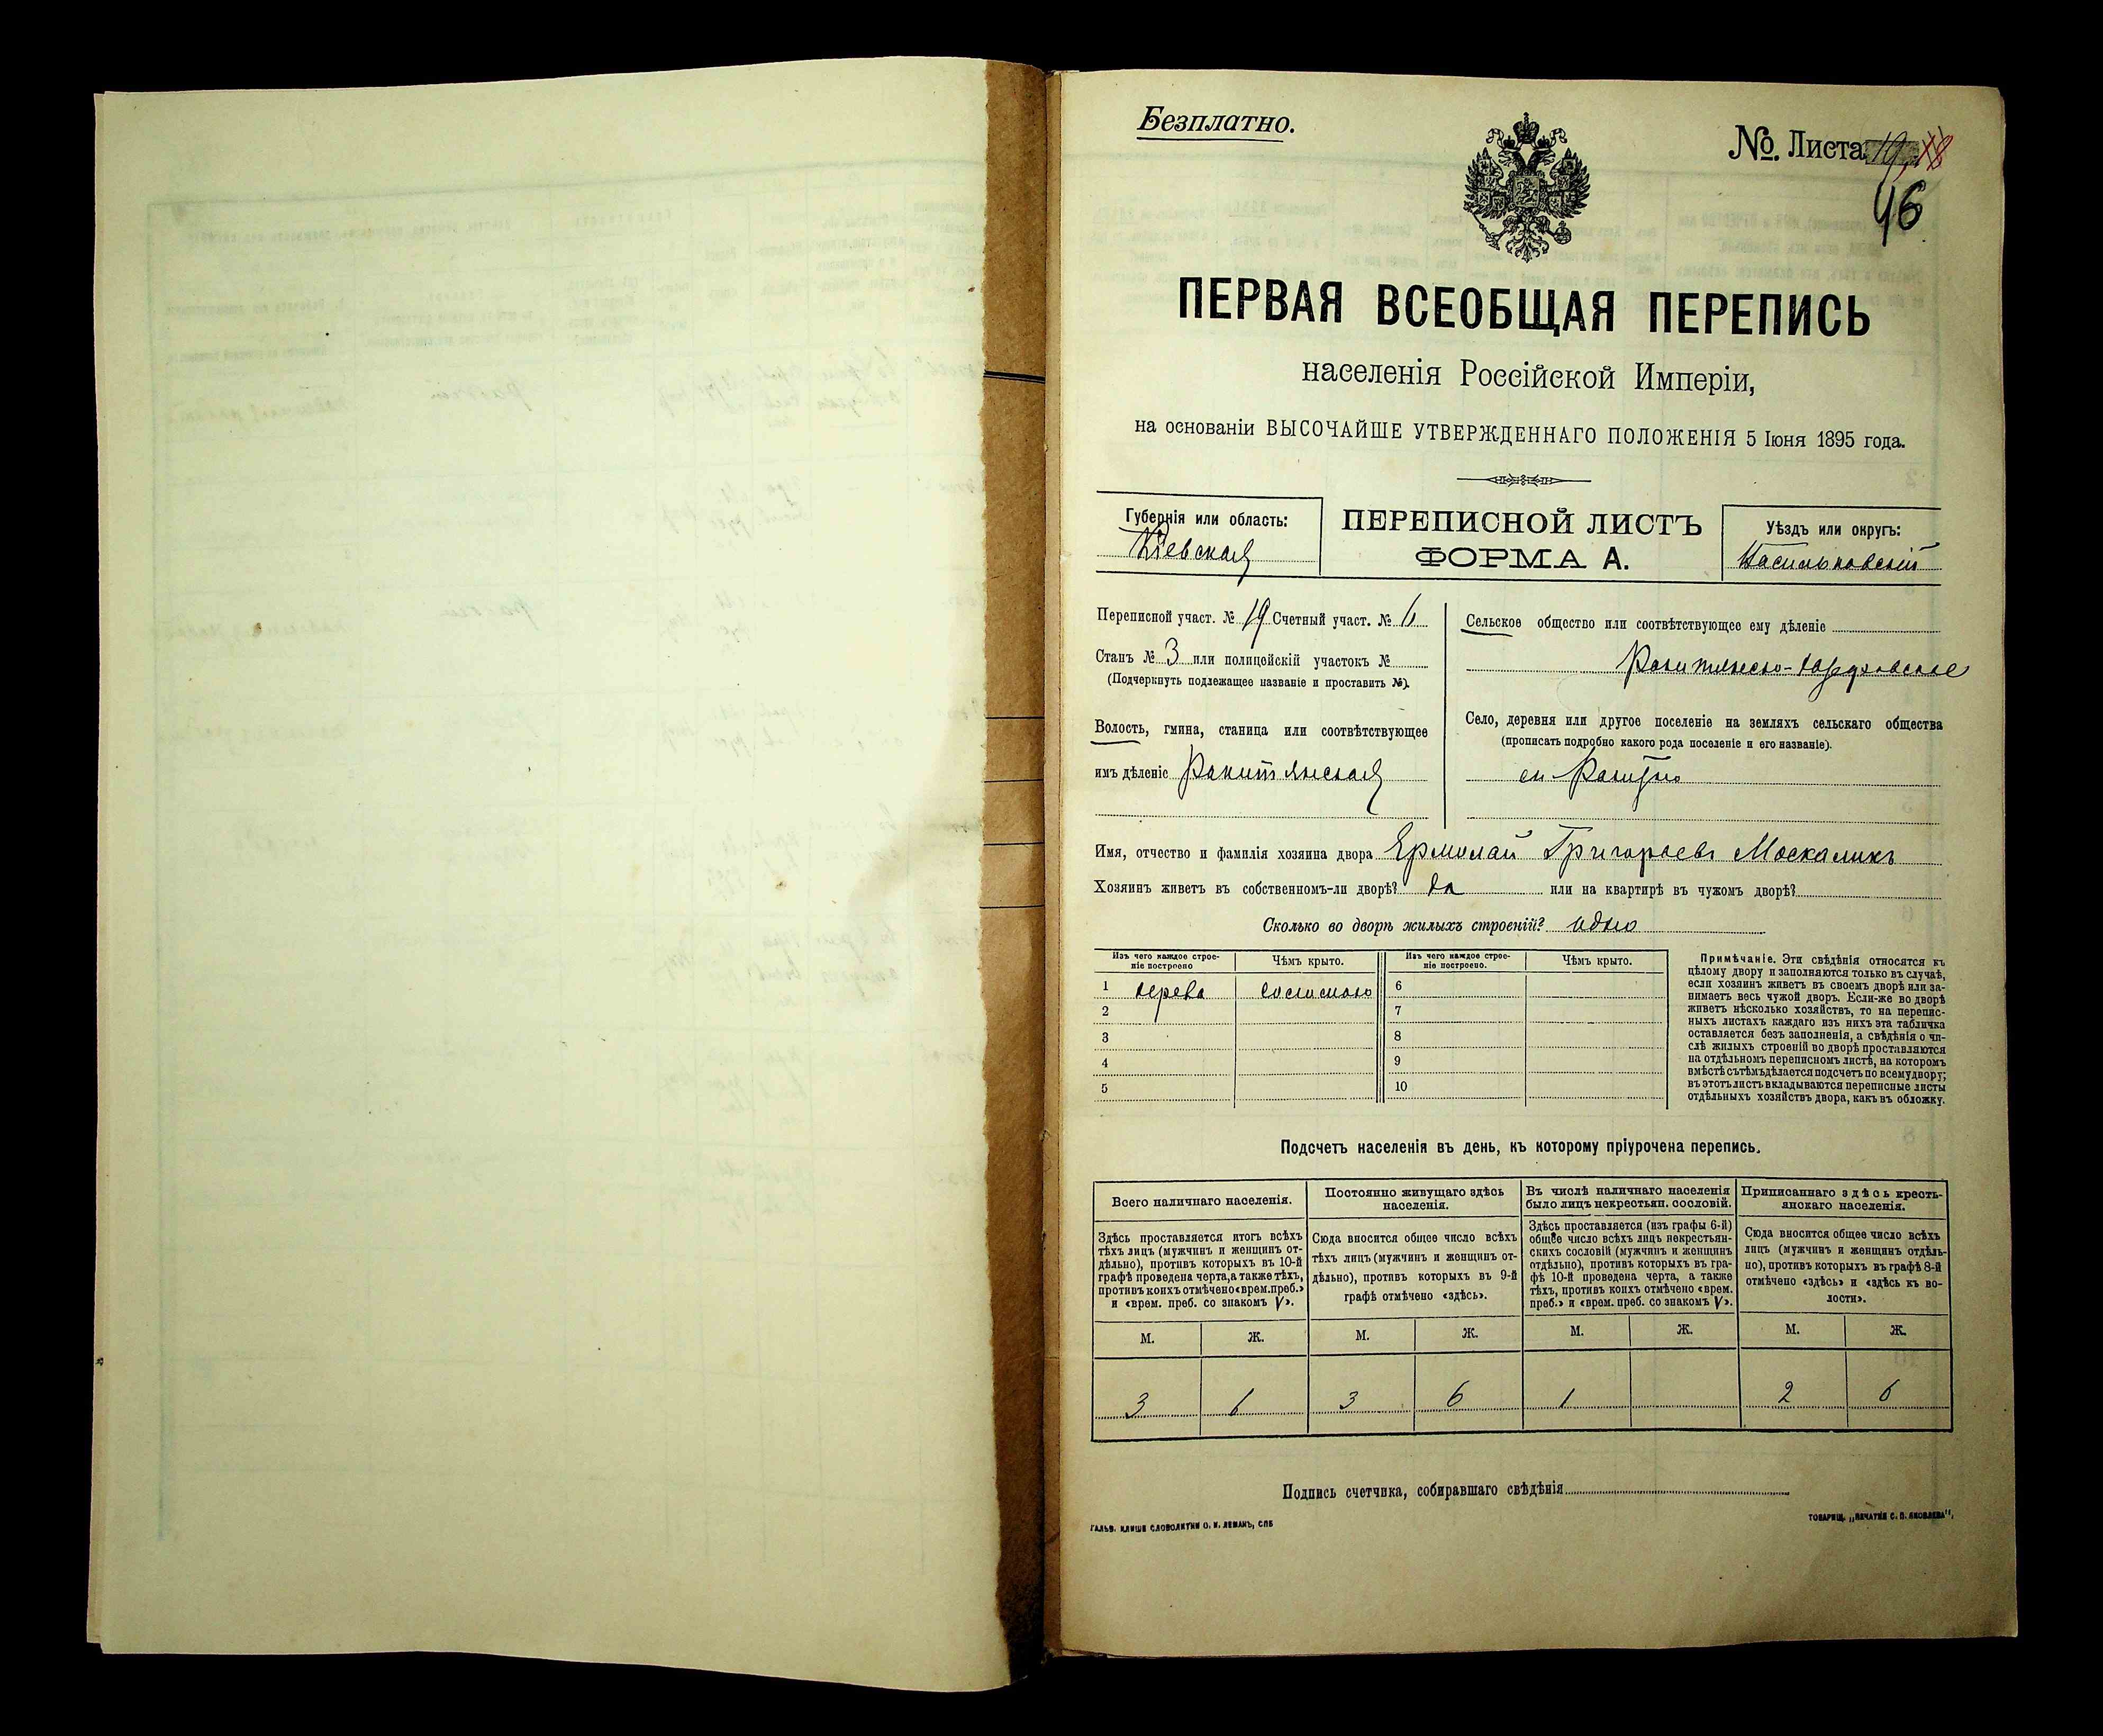 Безплатно.
№. Листа 19, 18
46
ПЕРВАЯ ВСЕОБЩАЯ ПЕРЕПИСЬ
населенія Россійской Имперіи,
на основаніи ВЫСОЧАЙШЕ УТВЕРЖДЕННАГО ПОЛОЖЕНІЯ 5 Іюня 1895 года.
Губернія или область:
Кіевская
ПЕРЕПИСНОЙ ЛИСТЪ
ФОРМА А.
Уѣздъ или округъ:
Васильковскій
Переписной участ. № 19 Счетный участ. № 6
Станъ № 3 или полицейскій участокъ №
(Подчеркнуть подлежащее названіе и проставить №).
Волость, гмина, станица или соотвѣтствующее
имъ дѣленіе Ракитянская
Сельское общество или соотвѣтствующее ему дѣленіе
Ракитянско-
Село, деревня или другое поселеніе на земляхъ сельскаго общества
(прописать подробно какого рода поселеніе и его названіе).
Ракитно
Имя, отчество и фамилія хозяина двора Ермолай Григорьевъ Москаликъ
Хозяинъ живетъ въ собственномъ-ли дворѣ? да или на квартирѣ въ чужомъ дворѣ?
Сколько во дворѣ жилыхъ строеній? одно
Изъ чего каждое строе-
ніе построено
Чѣмъ крыто.
Изъ чего каждое строе-
ніе построено.
Чѣмъ крыто.
1 дерева соломою 6
2 7
3 8
4 9
5 10
Примѣчаніе. Эти свѣдѣнія относятся къ
цѣлому двору и заполняются только въ случаѣ,
если хозяинъ живетъ въ своемъ дворѣ или за-
нимаетъ весь чужой дворъ. Если-же во дворѣ
живетъ нѣсколько хозяйствъ, то на перепис-
ныхъ листахъ каждаго изъ нихъ эта табличка
оставляется безъ заполненія, а свѣдѣнія о чи-
слѣ жилыхъ строеній во дворѣ проставляются
на отдѣльномъ переписномъ листѣ, на которомъ
вмѣстѣ съ тѣмъ дѣлается подсчетъ по всему двору;
въ этотъ листъ вкладываются переписные листы
отдѣльныхъ хозяйствъ двора, какъ въ обложку.
Подсчетъ населенія въ день, къ которому пріурочена перепись.
Всего наличнаго населенія.
Здѣсь проставляется итогъ всѣхъ
тѣхъ лицъ (мужчинъ и женщинъ от-
дѣльно), противъ которыхъ въ 10-й
графѣ проведена черта, а также тѣхъ,
противъ коихъ отмѣчено «врем. преб.»
и «врем. преб. со знакомъ V».
Постоянно живущаго здѣсь
населенія.
Сюда вносится общее число всѣхъ
тѣхъ лицъ (мужчинъ и женщинъ от-
дѣльно), противъ которыхъ въ 9-й
графѣ отмѣчено «здѣсь».
Въ числѣ наличнаго населенія
было лицъ некрестьян. сословій.
Здѣсь проставляется (изъ графы 6-й)
общее число всѣхъ лицъ некрестьян-
скихъ сословій (мужчинъ и женщинъ
отдѣльно), противъ которыхъ въ гра-
фѣ 10-й проведена черта, а также
тѣхъ, противъ коихъ отмѣчено «врем.
преб.» и «врем. преб. со знакомъ V».
Приписаннаго здѣсь кресть-
янскаго населенія.
Сюда вносится общее число всѣхъ
лицъ (мужчинъ и женщинъ отдѣль-
но), противъ которыхъ въ графѣ 8-й
отмѣчено «здѣсь» и «здѣсь къ во-
лости».
М. Ж. М. Ж. М. Ж. М. Ж.
3 6 3 6 1 2 6
Подпись счетчика, собиравшаго свѣдѣнія
ГАЛЬВ. КЛИШЕ СЛОВОЛИТНИ О. И. ЛЕМАНЪ, СПБ
ТОВАРИЩ. „ПЕЧАТНЯ С. П. ЯКОВЛЕВА",